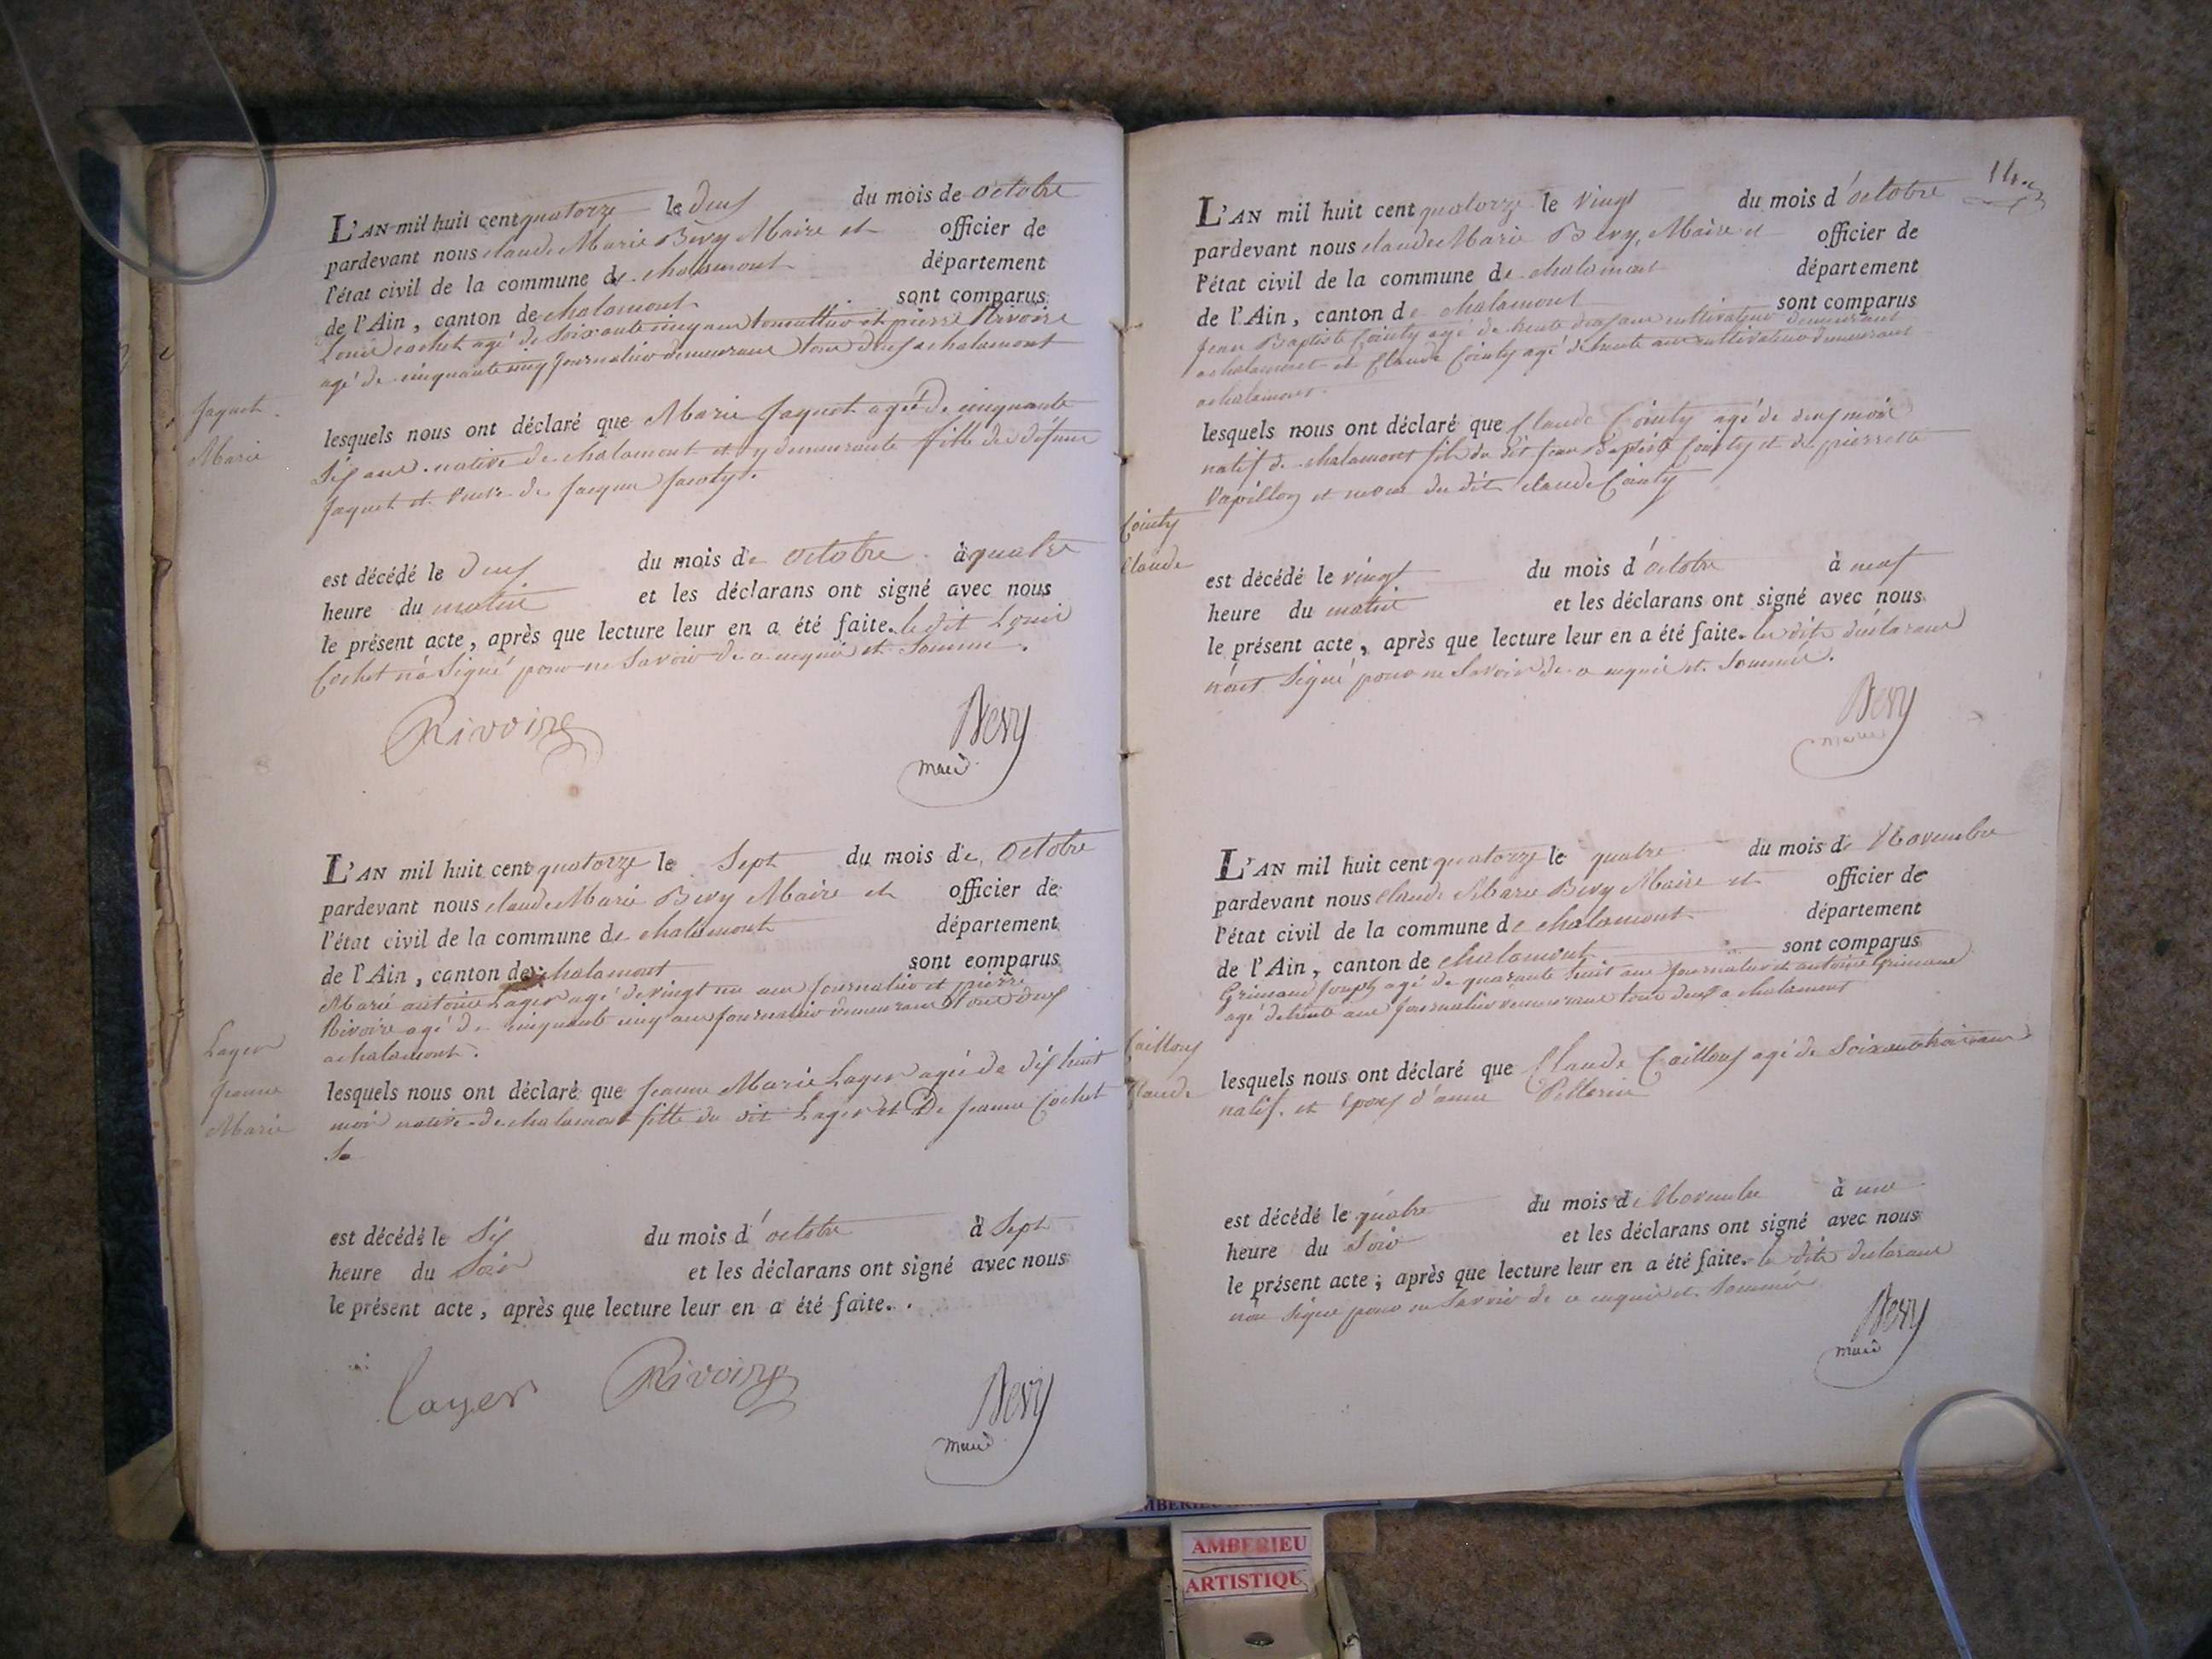 L'AN mil huit cent quatorze le deux du mois de octobre
pardevant nous claude Marie Bevy Maire et officier de
l'état civil de la commune de chalamont département
de l'Ain, canton de chalamont sont comparus
Louis cochet agé de Soixante cinq ans et pierre Rivoire
agé de cinquante cinq journalier demeurans tous deux a chalamont
Jaquet
Marie
lesquels nous ont déclaré que Marie Jaquet agée de cinquante
Six ans native de chalamont et y demeurante fille de défunt
Jaquet et veuve de Jacques
est décédé le deux du mois de octobre à quatre
heure du matin et les déclarans ont signé avec nous
le présent acte, après que lecture leur en a été faite. le dit Louis
Cochet n'a Signé pour ne Savoir de ce enquis et Sommé.
Rivoire Bevy
maire
L'AN mil huit cent quatorze le Sept du mois de Octobre
pardevant nous claude Marie Bevy Maire et officier de
l'état civil de la commune de chalamont département
de l'Ain, canton de chalamont sont comparus
Marie antoine Layer agé de vingt un ans Journalier et pierre
Rivoire agé de cinquante cinq ans journalier demeurans tous deux
a chalamont.
Layer
Jeanne
Marie
lesquels nous ont déclaré que Jeanne Marie Layer agée de dix huit
mois native de chalamont fille du dit Layer et De Jeanne Cochet
Sa
est décédé le Six du mois d'octobre à Sept
heure du Soir et les déclarans ont signé avec nous
le présent acte, après que lecture leur en a été faite.
Layer Rivoire Bevy
maire
L'AN mil huit cent quatorze le vingt du mois d'octobre
pardevant nous claude Marie Bevy, Maire et officier de
l'état civil de la commune de chalamont département
de l'Ain, canton de chalamont sont comparus
Jean Baptiste Cointy agé de trente deux ans cultivateur demeurant
a chalamont et Claude Cointy agé de trente ans cultivateur demeurant
a chalamont.
Cointy
Claude
lesquels nous ont déclaré que Claude Cointy agé de deux mois
natif de chalamont fils du dit Jean Baptiste Cointy et de pierrette
Papillon et neveu du dit claude Cointy
est décédé le vingt du mois d'octobre à neuf
heure du matin et les déclarans ont signé avec nous
le présent acte, après que lecture leur en a été faite. les dits déclarans
n'ont Signé pour ne Savoir de ce enquis et Sommés.
Bevy
maire
L'AN mil huit cent quatorze le quatre du mois de Novembre
pardevant nous Claude Marie Bevy Maire et officier de
l'état civil de la commune de chalamont département
de l'Ain, canton de chalamont sont comparus
Grimaud Joseph agé de quarante huit ans journalier et antoine Grimaud
agé de trente ans Journalier demeurans tous deux a chalamont
Cailloux
Claude
lesquels nous ont déclaré que Claude Cailloux agé de Soixante trois ans
natif et Epoux d'anne
est décédé le quatre du mois de Novembre à une
heure du Soir et les déclarans ont signé avec nous
le présent acte; après que lecture leur en a été faite. les dits declarans
n'on Signé pour ne Savoir de ce enquis et Sommés
Bevy
maire
AMBERIEU
ARTISTIQU